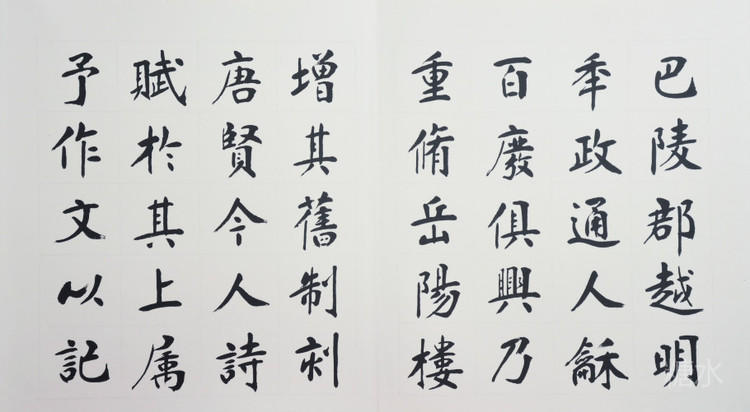 巴陵郡越明
秊政通人龢
百廢俱興乃
重脩岳陽樓
增其舊制刻
唐賢今人詩
賦於其上属
予作文以記